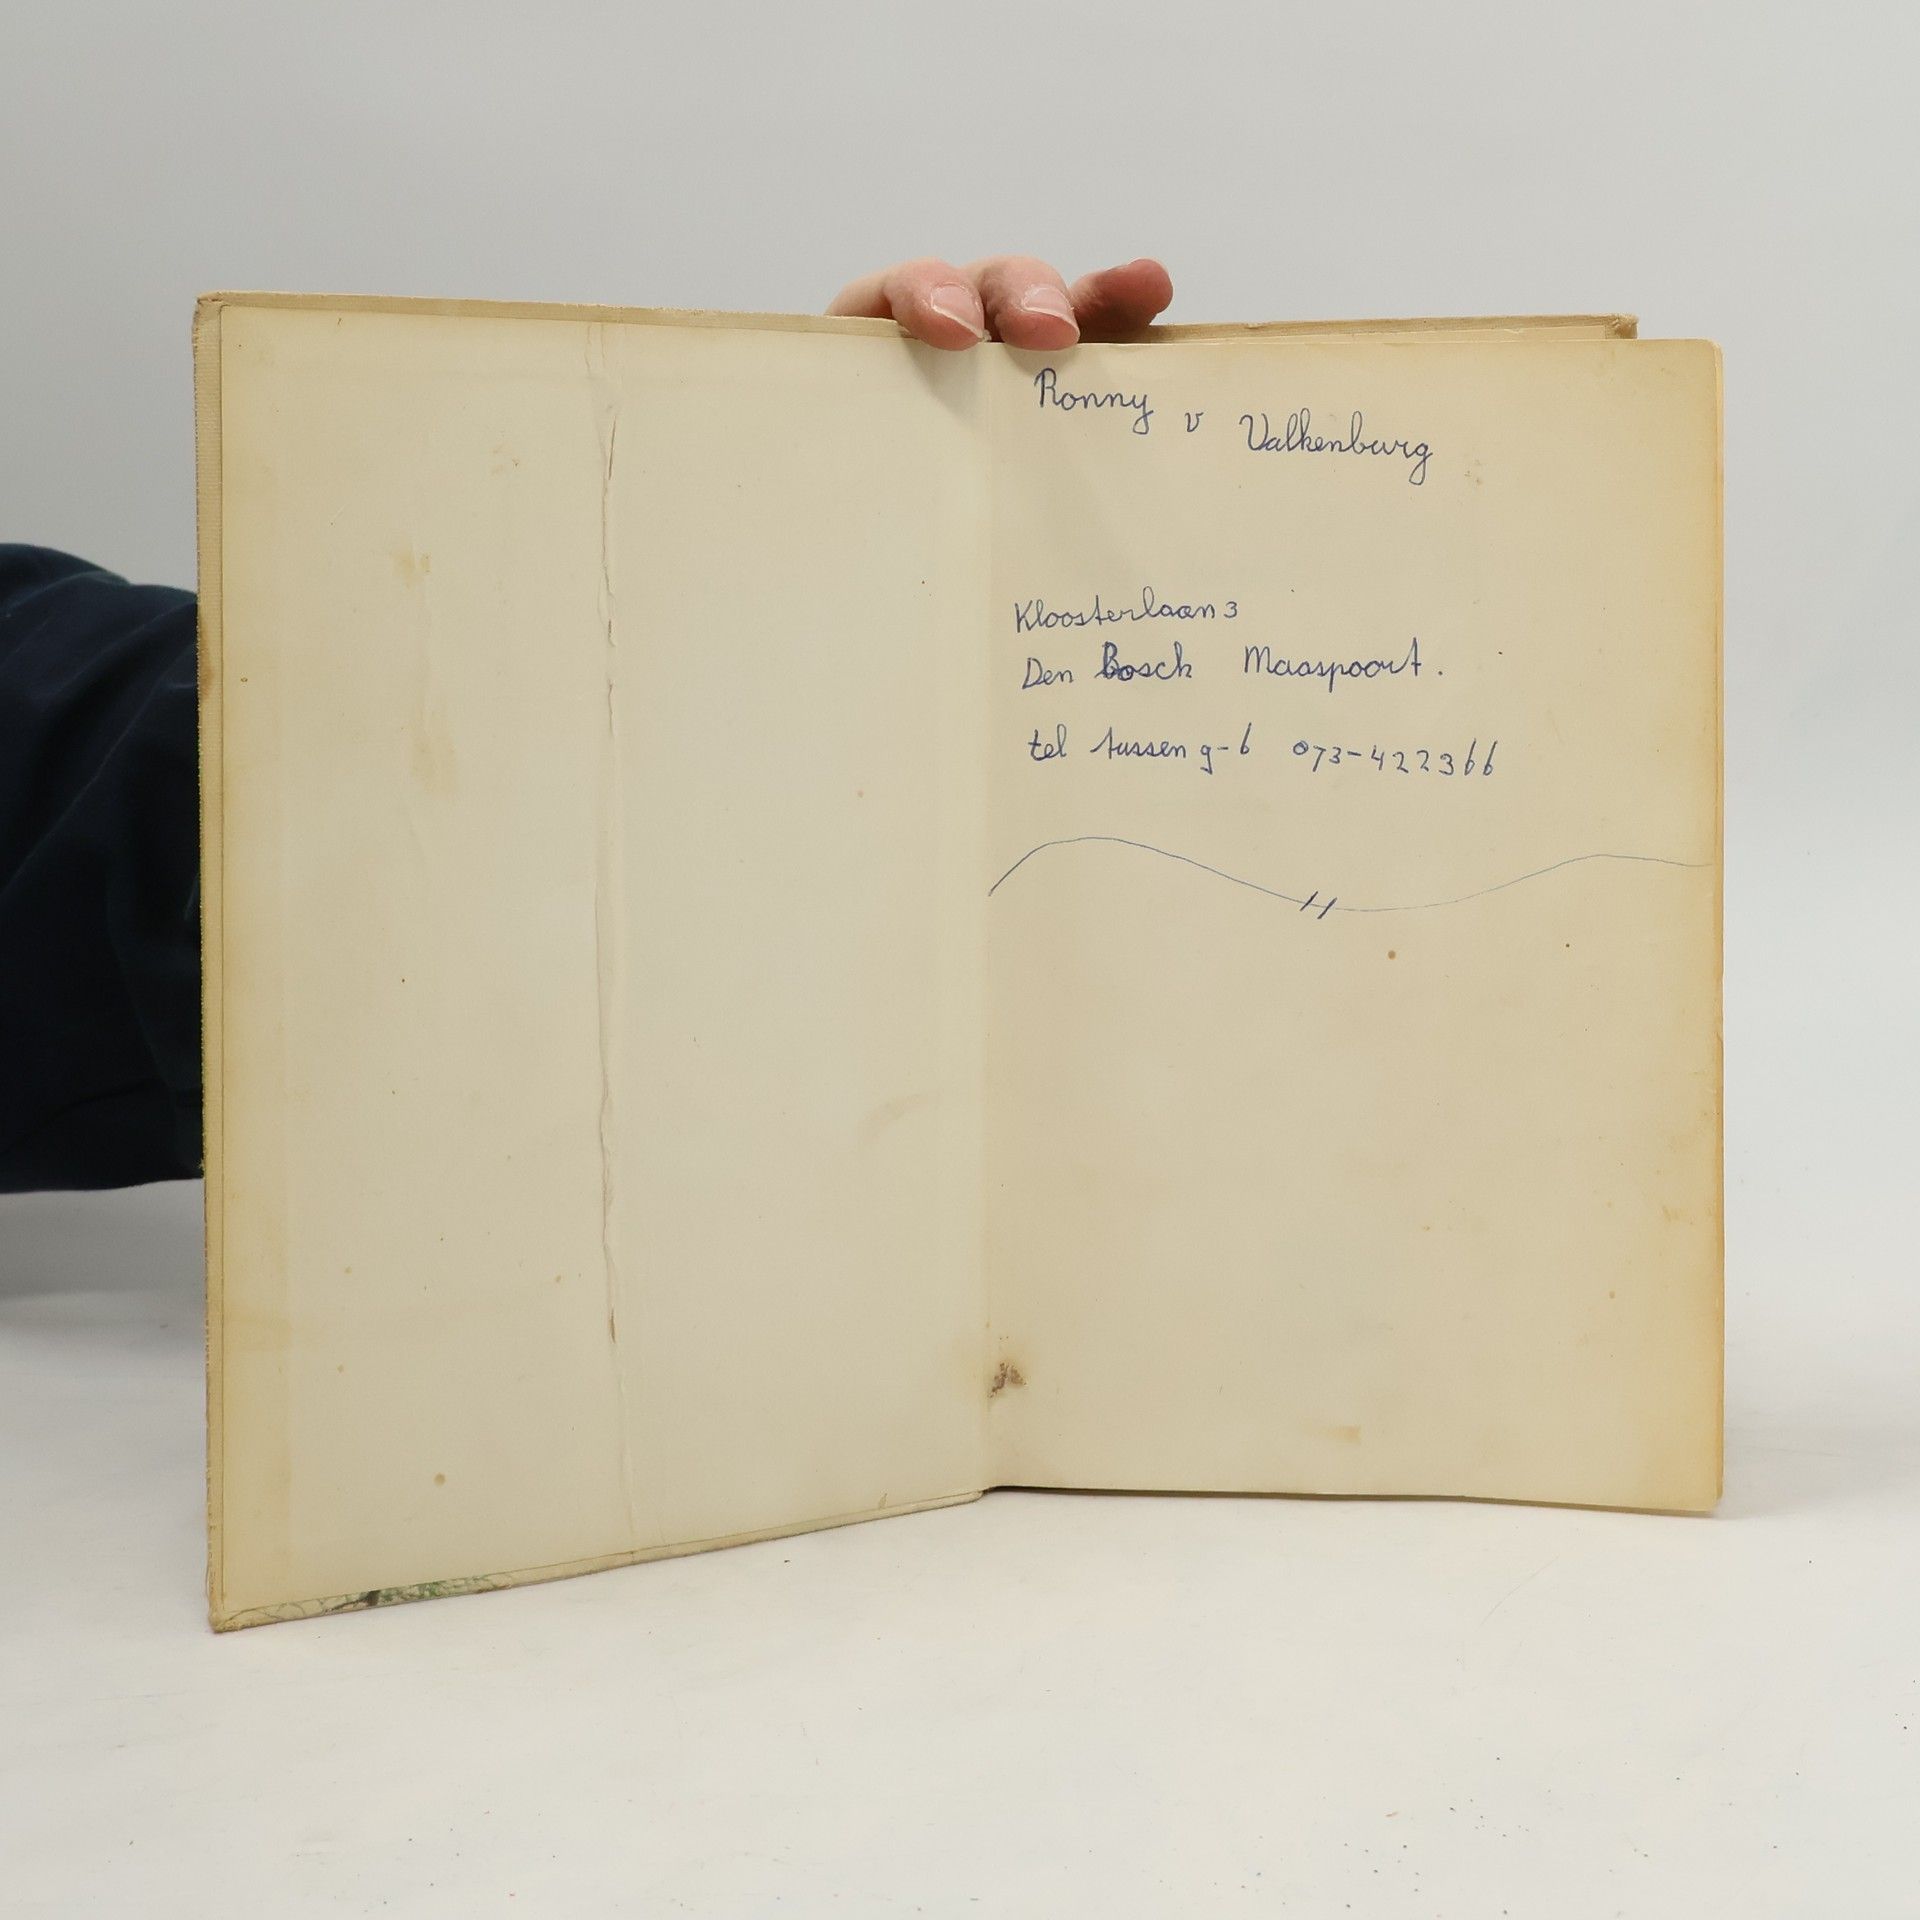 Ronny v Valkenburg
Kloosterlaan 3
Den Bosch Maaspoort.
tel tussen 9-6 073-422366